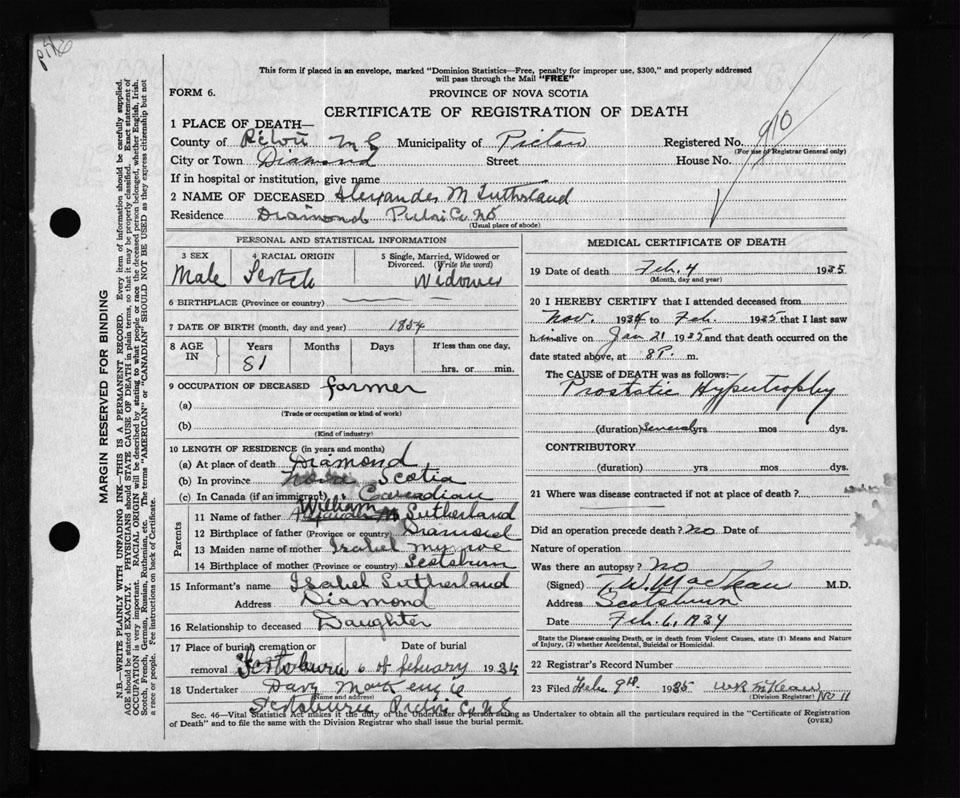 This form if placed in an envelope, marked "Dominion Statistics—Free, penalty for improper use, $300," and properly addressed
will pass through the Mail "FREE"
FORM 6.
PROVINCE OF NOVA SCOTIA
CERTIFICATE OF REGISTRATION OF DEATH
1 PLACE OF DEATH—
County of Pictou N S Municipality of Pictou Registered No. 910
(For use of Registrar General only)
City or Town Diamond Street House No.
If in hospital or institution, give name
2 NAME OF DECEASED Alexander M Sutherland
Residence Diamond Pictou Co. N S
(Usual place of abode)
PERSONAL AND STATISTICAL INFORMATION
3 SEX 4 RACIAL ORIGIN 5 Single, Married, Widowed or
Divorced. (Write the word)
Male Scotch Widower
6 BIRTHPLACE (Province or country)
7 DATE OF BIRTH (month, day and year) 1854
8 AGE IN Years Months Days If less than one day,
81 hrs. or min.
9 OCCUPATION OF DECEASED farmer
(a)
(Trade or occupation or kind of work)
(b)
(Kind of industry)
10 LENGTH OF RESIDENCE (in years and months)
(a) At place of death Diamond
(b) In province Nova Scotia
(c) In Canada (if an immigrant) Canadian
Parents
11 Name of father William Sutherland
12 Birthplace of father (Province or country) Diamond
13 Maiden name of mother Isabel
14 Birthplace of mother (Province or country) Scotsburn
15 Informant's name Isabel Sutherland
Address Diamond
16 Relationship to deceased Daughter
17 Place of burial cremation or
removal Scotsburn Date of burial 6 of febuary 1935
18 Undertaker Davy
(Name and address)
Scotsburn Pictou Co. N S
MEDICAL CERTIFICATE OF DEATH
19 Date of death Feb. 4 1935
(Month, day and year)
20 I HEREBY CERTIFY that I attended deceased from
Nov. 1934 to Feb. 1935 that I last saw
him alive on Jan 21 1935 and that death occurred on the
date stated above, at 8 P. m.
The CAUSE of DEATH was as follows:
Prostatic Hypertrophy
(duration) Several yrs mos dys.
CONTRIBUTORY
(duration) yrs mos dys.
21 Where was disease contracted if not at place of death?
Did an operation precede death? no Date of
Nature of operation
Was there an autopsy? No
(Signed) T. W. MacKean M.D.
Address Scotsburn
Date Feb. 6, 1934
State the Disease causing Death, or in death from Violent Causes, state (1) Means and Nature
of Injury, (2) whether Accidental, Suicidal or Homicidal.
22 Registrar's Record Number
23 Filed Feb. 9th. 1935 W R McKean
(Division Registrar) No 11
Sec. 46—Vital Statistics Act makes it the duty of the Undertaker or person acting as Undertaker to obtain all the particulars required in the "Certificate of Registration
of Death" and to file the same with the Division Registrar who shall issue the burial permit. (OVER)
MARGIN RESERVED FOR BINDING
N.B.—WRITE PLAINLY WITH UNFADING INK—THIS IS A PERMANENT RECORD. Every item of information should be carefully supplied.
AGE should be stated EXACTLY. PHYSICIANS should STATE CAUSE OF DEATH in plain terms, so that it may be properly classified. Exact statement of
OCCUPATION is very important. RACIAL ORIGIN will be described by stating to what people or race the deceased person belonged, whether English, Irish,
Scotch, French, German, Russian, Ruthenian, etc. The terms "AMERICAN" or "CANADIAN" SHOULD NOT BE USED as they express citizenship but not
a race or people. See instructions on back of Certificate.